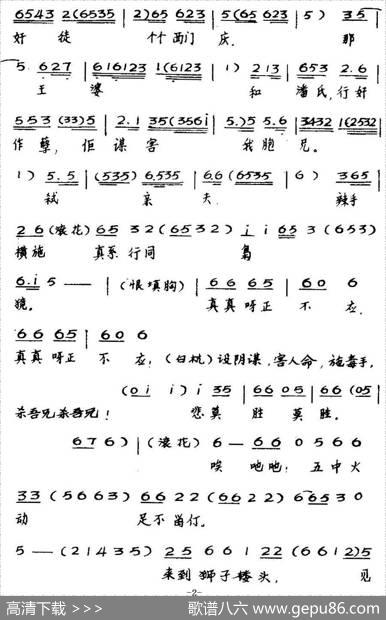 6543 2(6535 | 2)65 623 | 5(65 623 | 5) 35 |
奸徒 个个西门庆. 那
5. 627 | 616123 1(6123 | 1) 213 | 653 2.6 |
王婆 和潘氏,行奸
553 (33)5 | 2.1 35(356i | 5.)5 5.6 | 3432 1(2532 |
作孽, 佢谋害 我胞兄。
1) 5.5 | (535) 6.535 | 6.6 (6535 | 6) 365 |
弑亲夫. 辣手
26 (滚花) 65 32 (65 32) i i 65 3 (653)
横施 真系行同 鸟
6.i 5 —— | (恨填胸) | 66 65 | 60 6
镜。 真真呀正 不应.
66 65 | 60 6
真真呀正 不应: (白杭) 设阴谋,害人命,施毒手,
(0i i) i 35 | 66 05 | 66 (05 |
杀吾兄杀吾兄! 悲莫胜莫胜。
676) | (滚花) 6 — 66 0 5 6 6
唉吔吔: 五中火
33 (5663) 66 22 (6622) 66530
动 足不留仃。
5 — (21435) 25 661 22 (6612)5
来到狮子楼头, 见
-2-
高清下载 > >>> 歌谱八六 www.gepu86.com